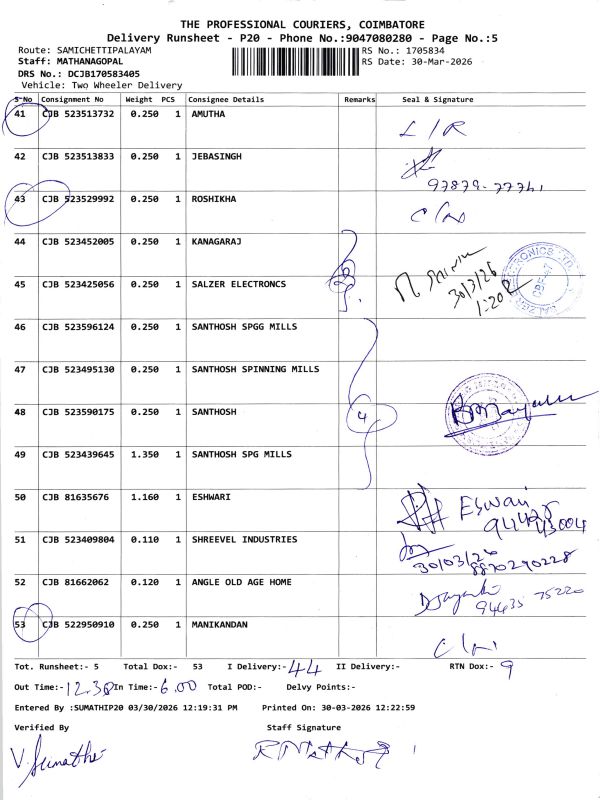 THE PROFESSIONAL COURIERS, COIMBATORE
Delivery Runsheet - P20 - Phone No.:9047080280 - Page No.:5
Route: SAMICHETTIPALAYAM RS No.: 1705834
Staff: MATHANAGOPAL RS Date: 30-Mar-2026
DRS No.: DCJB170583405
Vehicle: Two Wheeler Delivery
S-No Consignment No Weight PCS Consignee Details Remarks Seal & Signature
41 CJB 523513732 0.250 1 AMUTHA L/R
42 CJB 523513833 0.250 1 JEBASINGH
43 CJB 523529992 0.250 1 ROSHIKHA
44 CJB 523452005 0.250 1 KANAGARAJ
45 CJB 523425056 0.250 1 SALZER ELECTRONICS 30/3/26
1:20
46 CJB 523596124 0.250 1 SANTHOSH SPGG MILLS
47 CJB 523495130 0.250 1 SANTHOSH SPINNING MILLS
48 CJB 523590175 0.250 1 SANTHOSH 4
49 CJB 523439645 1.350 1 SANTHOSH SPG MILLS
50 CJB 81635676 1.160 1 ESHWARI Eswari
51 CJB 523409804 0.110 1 SHREEVEL INDUSTRIES 30/03/26
8870290228
52 CJB 81662062 0.120 1 ANGLE OLD AGE HOME 94435 75220
53 CJB 522950910 0.250 1 MANIKANDAN
Tot. Runsheet:- 5 Total Dox:- 53 I Delivery:- 44 II Delivery:- RTN Dox:- 9
Out Time:- 12.30 In Time:- 6.00 Total POD:- Delvy Points:-
Entered By :SUMATHIP20 03/30/2026 12:19:31 PM Printed On: 30-03-2026 12:22:59
Verified By Staff Signature
V. Sumathi